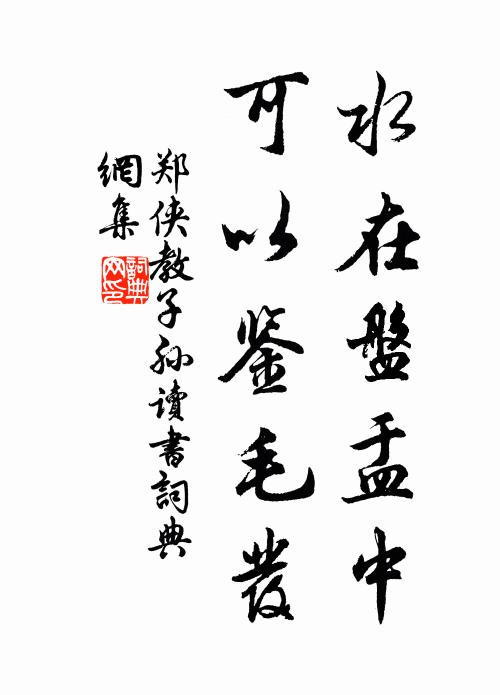 水在盤盂中
可以鉴毛發
郑侠教子孙讀書詞典
網集
詞典
网印